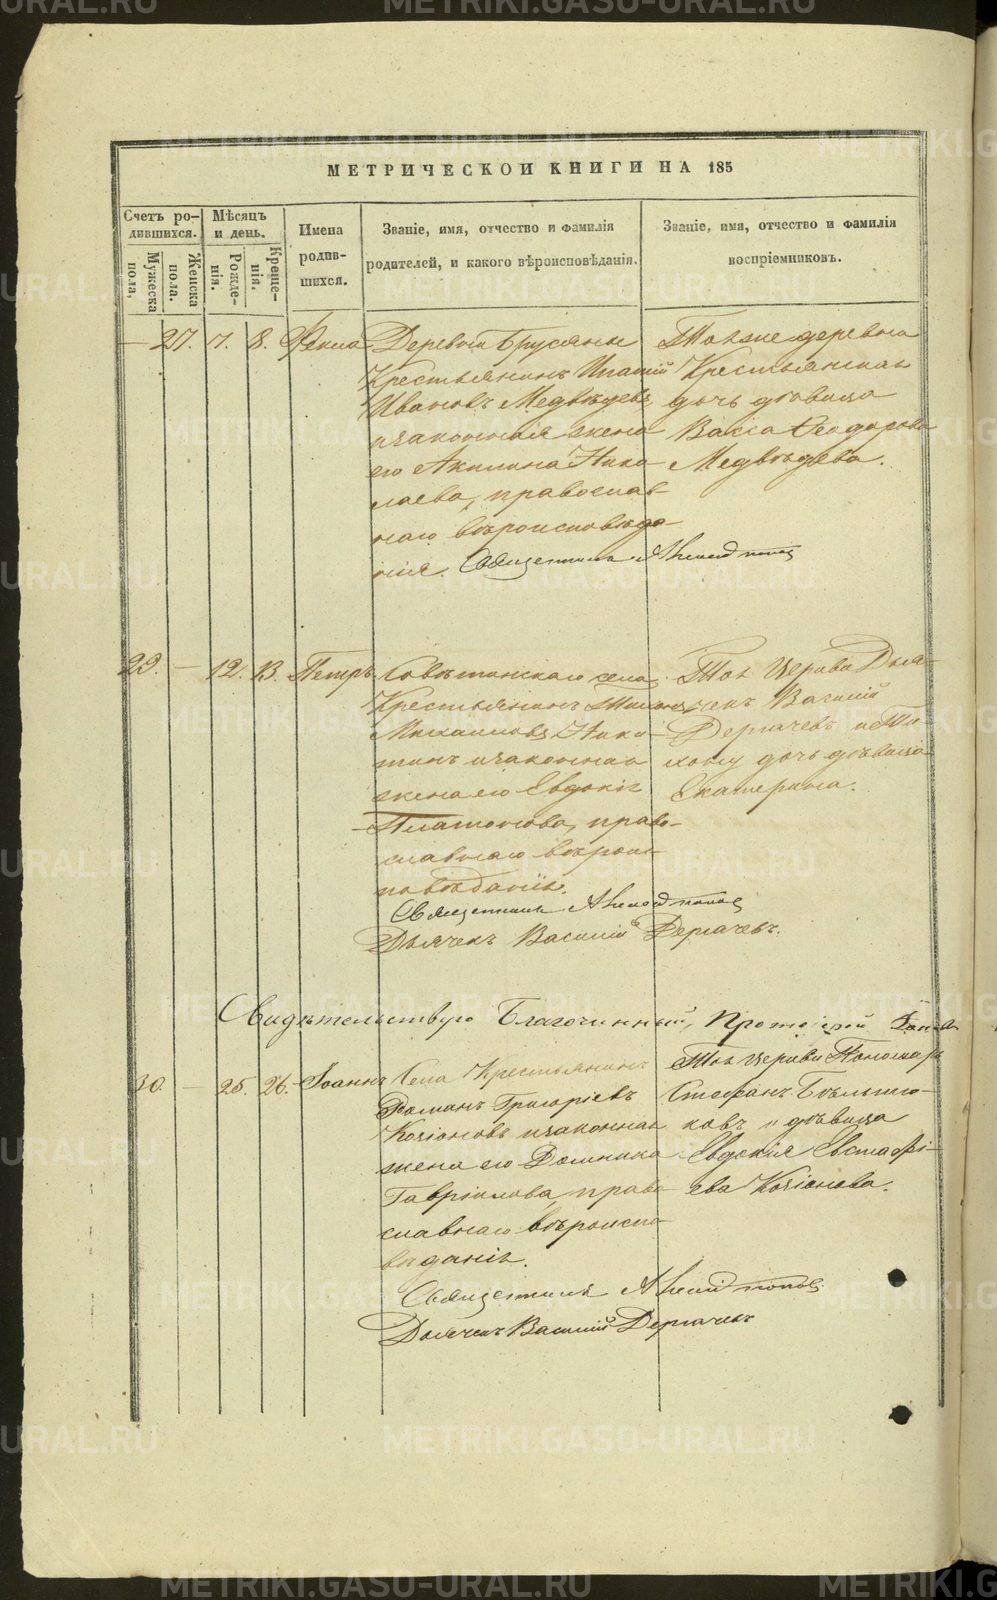 МЕТРИЧЕСКОЙ КНИГИ НА 185
Счетъ родившихся.
Мужеска пола,
Женска пола.
Мѣсяцъ и день.
Рожденія.
Крещенія.
Имена родившихся.
Званіе, имя, отчество и фамилія
родителей, и какого вѣроисповѣданія.
Званіе, имя, отчество и фамилія
воспріемниковъ.
— 27. 7. 8. Фекла
Деревни Брусяны
Крестьянинъ Ипатій
Ивановъ Медвѣдевъ
и законная жена
его Акилина Нико
лаева, православ-
наго вѣроисповѣда
нія. Священникъ
Тойже деревни
Крестьянская
дочь дѣвица
Васса Феодорова
Медвѣдева.
29. — 12. 13. Петръ
села
Крестьянинъ
Михайловъ Ники-
тинъ и законная
жена его Евдокія
Платонова, право-
славнаго вѣроис-
повѣданія.
Священникъ
Дьячекъ Василій Дергачевъ.
Той церкви Дья-
чекъ Василій
Дергачевъ и
дочь дѣвица
Екатерина.
Свидѣтельствую Благочинный, Протоіерей
30. — 25. 26. Іоаннъ
Села Крестьянинъ
Романъ Григоріевъ
и законная
жена его Домника
Гавріилова, право
славнаго вѣроиспо
вѣданія.
Священникъ
Дьячекъ Василій Дергачевъ
Той церкви Пономарь
Стефанъ
ковъ и дѣвица
Евдокія Евстафі-
ева
METRIKI.GASO-URAL.RU